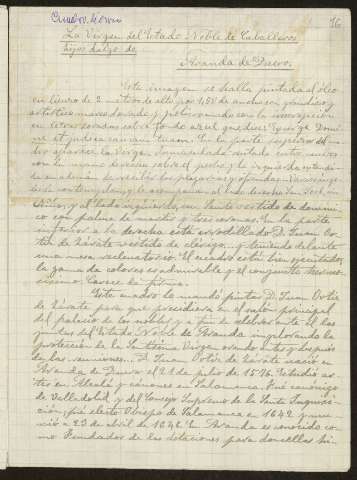 16
La Virgen del Estado Noble de Caballeros
hijosdalgo de
Aranda de Duero.
Esta imagen se halla pintada al óleo
en lienzo de 2 metros de alto por 1,50 de ancho con grandioso y
artístico marco dorado y policromado con la inscripción
en letras doradas sobre fondo azul que dice:
et judica causam tuam. En la parte superior del
aparece la Virgen Inmaculada sentada entre nubes
con la mano derecha sobre el pecho y la izquierda
en ademán de recibir las plegarias y ofrendas.
y la acompaña al lado derecho San José,
y al lado izquierdo, un Santo vestido de domini-
co con palma de martir y tres coronas. En la parte
inferior a la derecha está arrodillado D. Juan Or-
tiz de Zárate vestido de clérigo y teniendo delante
una mesa reclinatorio. El cuadro está bien ejecutado,
la gama de colores es admirable y el conjunto hermo-
sísimo. Carece de firma.
Este cuadro lo mandó pintar D. Juan Ortiz
de Zárate para que presidiera en el salón principal
del palacio de los a fin de celebrar ante él las
juntas del Estado Noble de Aranda implorando la
protección de la Santísima Virgen orando antes y después
de las reuniones. D. Juan Ortiz de Zárate nació en
Aranda de Duero el 21 de julio de 1576. Estudió ar-
tes en Alcalá y cánones en Salamanca. Fué canónigo
de Valladolid y del Consejo Supremo de la Santa Inquisi-
ción, fué electo Obispo de Salamanca en 1642 y mu-
rió a 23 de abril de 1646. En Aranda es conocido co-
mo Fundador de las dotaciones para doncellas hi-